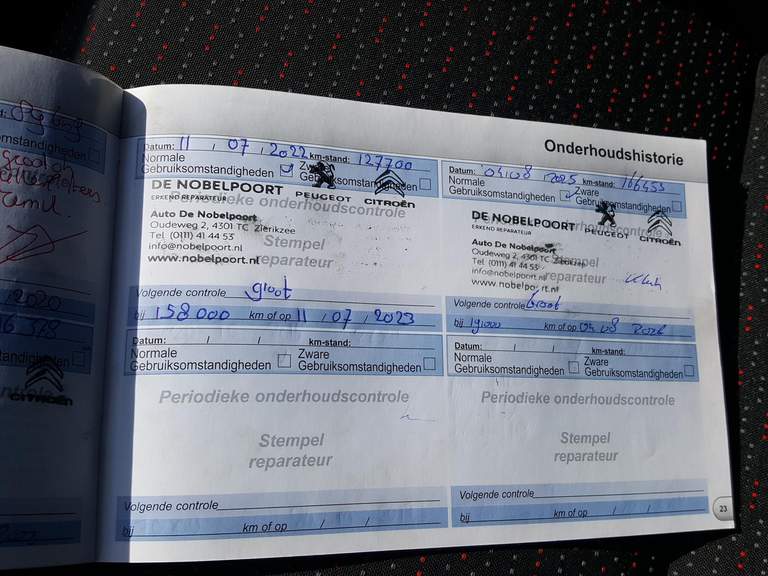 Onderhoudshistorie
Datum: 11 , 07 , 2022 km-stand: 127700
Normale
Gebruiksomstandigheden
Zware
Gebruiksomstandigheden
DE NOBELPOORT
ERKEND REPARATEUR
PEUGEOT
CITROËN
Periodieke onderhoudscontrole
Auto De Nobelpoort
Oudeweg 2, 4301 TC Zierikzee
Tel. (0111) 41 44 53
info@nobelpoort.nl
www.nobelpoort.nl
Stempel
reparateur
Volgende controle groot
bij 158000 km of op 11 / 07 / 2023
Datum: / / km-stand:
Normale
Gebruiksomstandigheden
Zware
Gebruiksomstandigheden
Periodieke onderhoudscontrole
Stempel
reparateur
Volgende controle
bij km of op / /
Datum: 04 08 2025 km-stand: 166453
Normale
Gebruiksomstandigheden
Zware
Gebruiksomstandigheden
DE NOBELPOORT
ERKEND REPARATEUR
PEUGEOT
CITROËN
onderhoudscontrole
Auto De Nobelpoort
Oudeweg 2, 4301 TC Zierikzee
Tel. (0111) 41 44 53
info@nobelpoort.nl
www.nobelpoort.nl
Stempel
reparateur
Volgende controle Groot
bij km of op 04 08 2026
Datum: / / km-stand:
Normale
Gebruiksomstandigheden
Zware
Gebruiksomstandigheden
Periodieke onderhoudscontrole
Stempel
reparateur
Volgende controle
bij km of op / /
23
2020
CITROËN